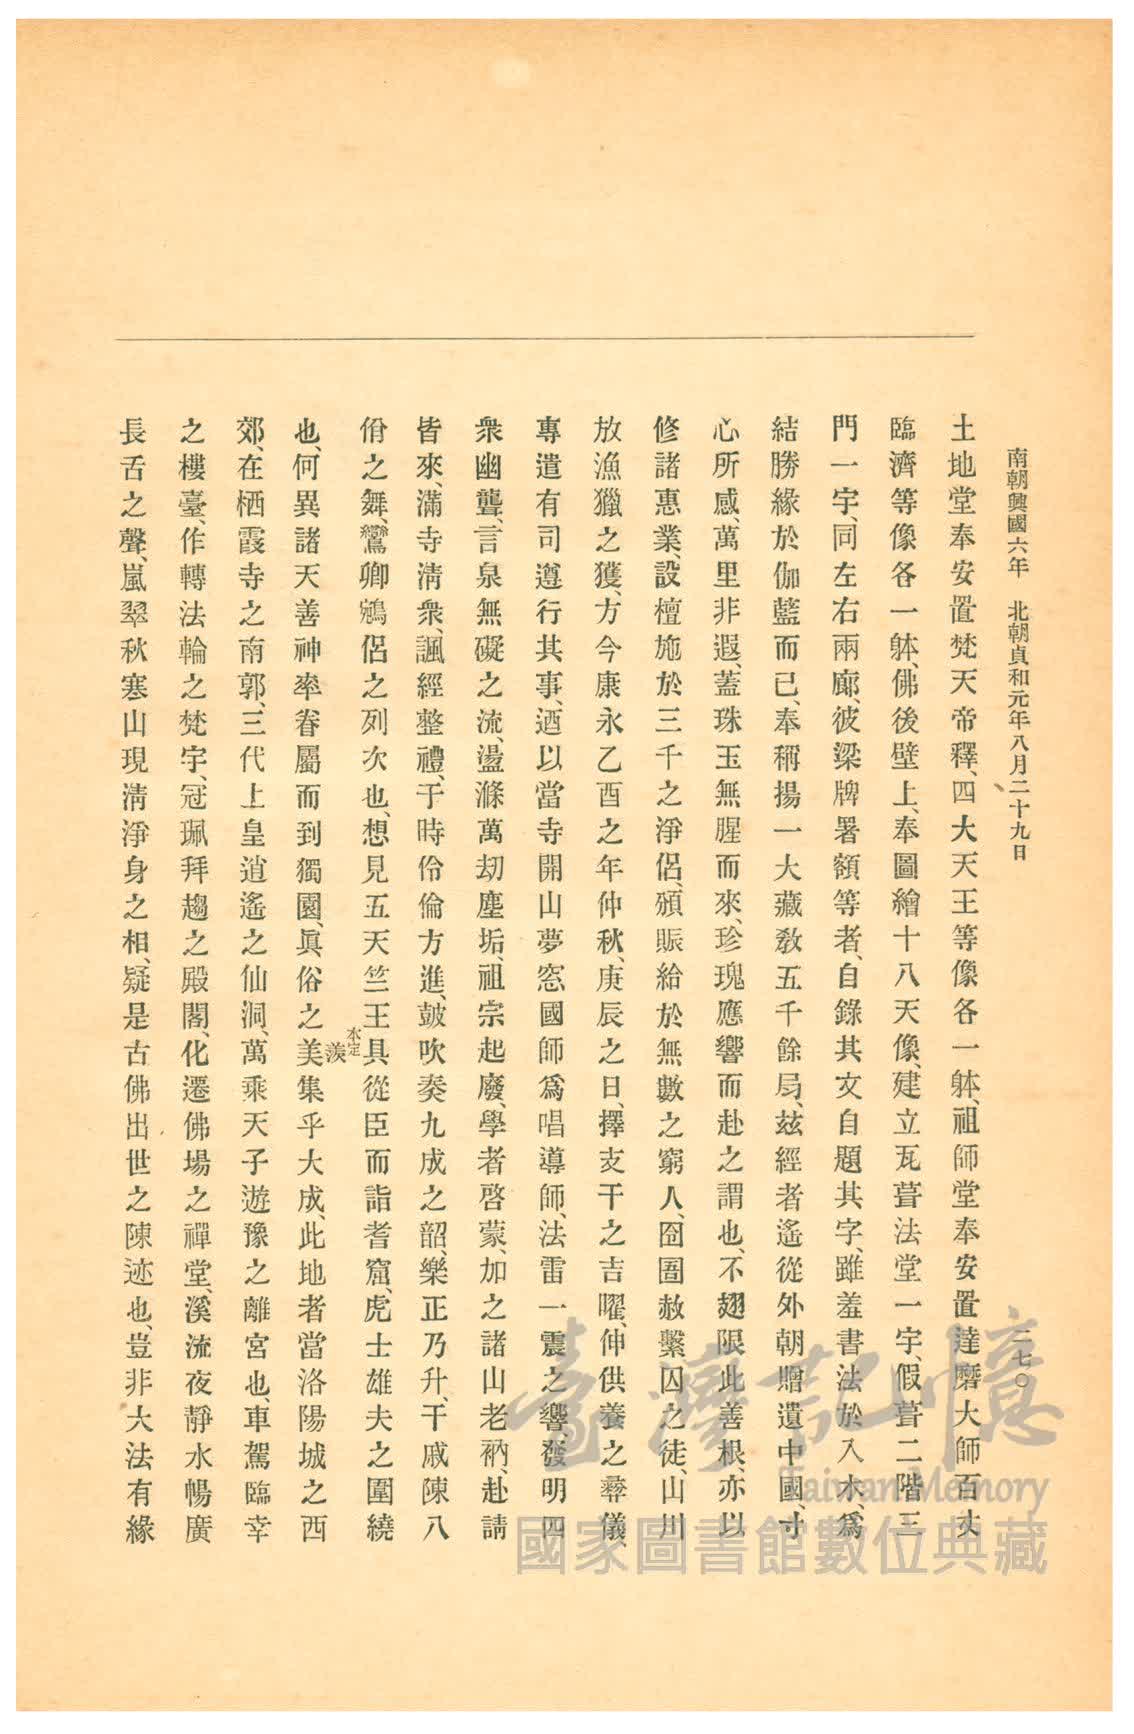 南朝興國六年　北朝貞和元年八月二十九日　二七〇
土地堂奉安置梵天帝釋、四大天王等像各一躰、祖師堂奉安置達磨大師百丈
臨濟等像各一躰、佛後壁上、奉圖繪十八天像、建立瓦葺法堂一宇、假葺二階三
門一宇、同左右兩廊、彼梁牌署額等者、自錄其文自題其字、雖羞書法於入木、爲
結勝緣於伽藍而已、奉稱揚一大藏敎五千餘局、玆經者遙從外朝贈遺中國、寸
心所感、萬里非遐、蓋珠玉無腥而來、珍瑰應響而赴之謂也、不翅限此善根、亦以
修諸惠業、設檀施於三千之淨侶、頒賑給於無數之窮人、囹圄赦繫囚之徒、山川
放漁獵之獲、方今康永乙酉之年仲秋、庚辰之日、擇支干之吉曜、伸供養之彝儀、
專遣有司遵行其事、迺以當寺開山夢窓國師爲唱導師、法雷一震之響、發明四
衆幽聾、言泉無礙之流、盪滌萬劫塵垢、祖宗起廢、學者啓蒙、加之諸山老衲、赴請
皆來、滿寺淸衆、諷經整禮、于時伶倫方進、皷吹奏九成之韶、樂正乃升、干戚陳八
佾之舞、鸞卿鵷侶之列次也、想見五天竺王具從臣而詣耆窟、虎士雄夫之圍繞
也、何異諸天善神率眷屬而到獨園、眞俗之美集乎大成、此地者當洛陽城之西
羨
本定
郊、在栖霞寺之南郭、三代上皇逍遙之仙洞、萬乘天子遊豫之離宮也、車駕臨幸
之樓臺、作轉法輪之梵宇、冠珮拜趨之殿閣、化遷佛場之禪堂、溪流夜靜水暢廣
長舌之聲、嵐翠秋寒山現淸淨身之相、疑是古佛出世之陳迹也、豈非大法有緣
臺灣記憶
Taiwan Memory
國家圖書館數位典藏